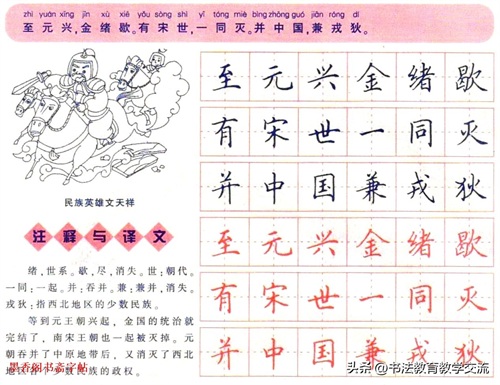 zhì yuán xīng jīn xù xiē yǒu sòng shì yī tóng miè bìng zhōng guó jiān róng dí
至元兴,金绪歇。有宋世,一同灭。并中国,兼戎狄。
民族英雄文天祥
注释与译文
绪,世系。歇,尽,消失。世:朝代。
一同:一起。并:吞并。兼:兼并,消失。
戎狄:指西北地区的少数民族。
等到元王朝兴起,金国的统治就
完结了,南宋王朝也一起被灭掉。元
朝吞并了中原地带后,又消灭了西北
数民族的政权。
至元兴金绪歇
有宋世一同灭
并中国兼戎狄
至元兴金绪歇
有宋世一同灭
并中国兼戎狄
墨香阁书斋字帖
头条@书法教育教学交流